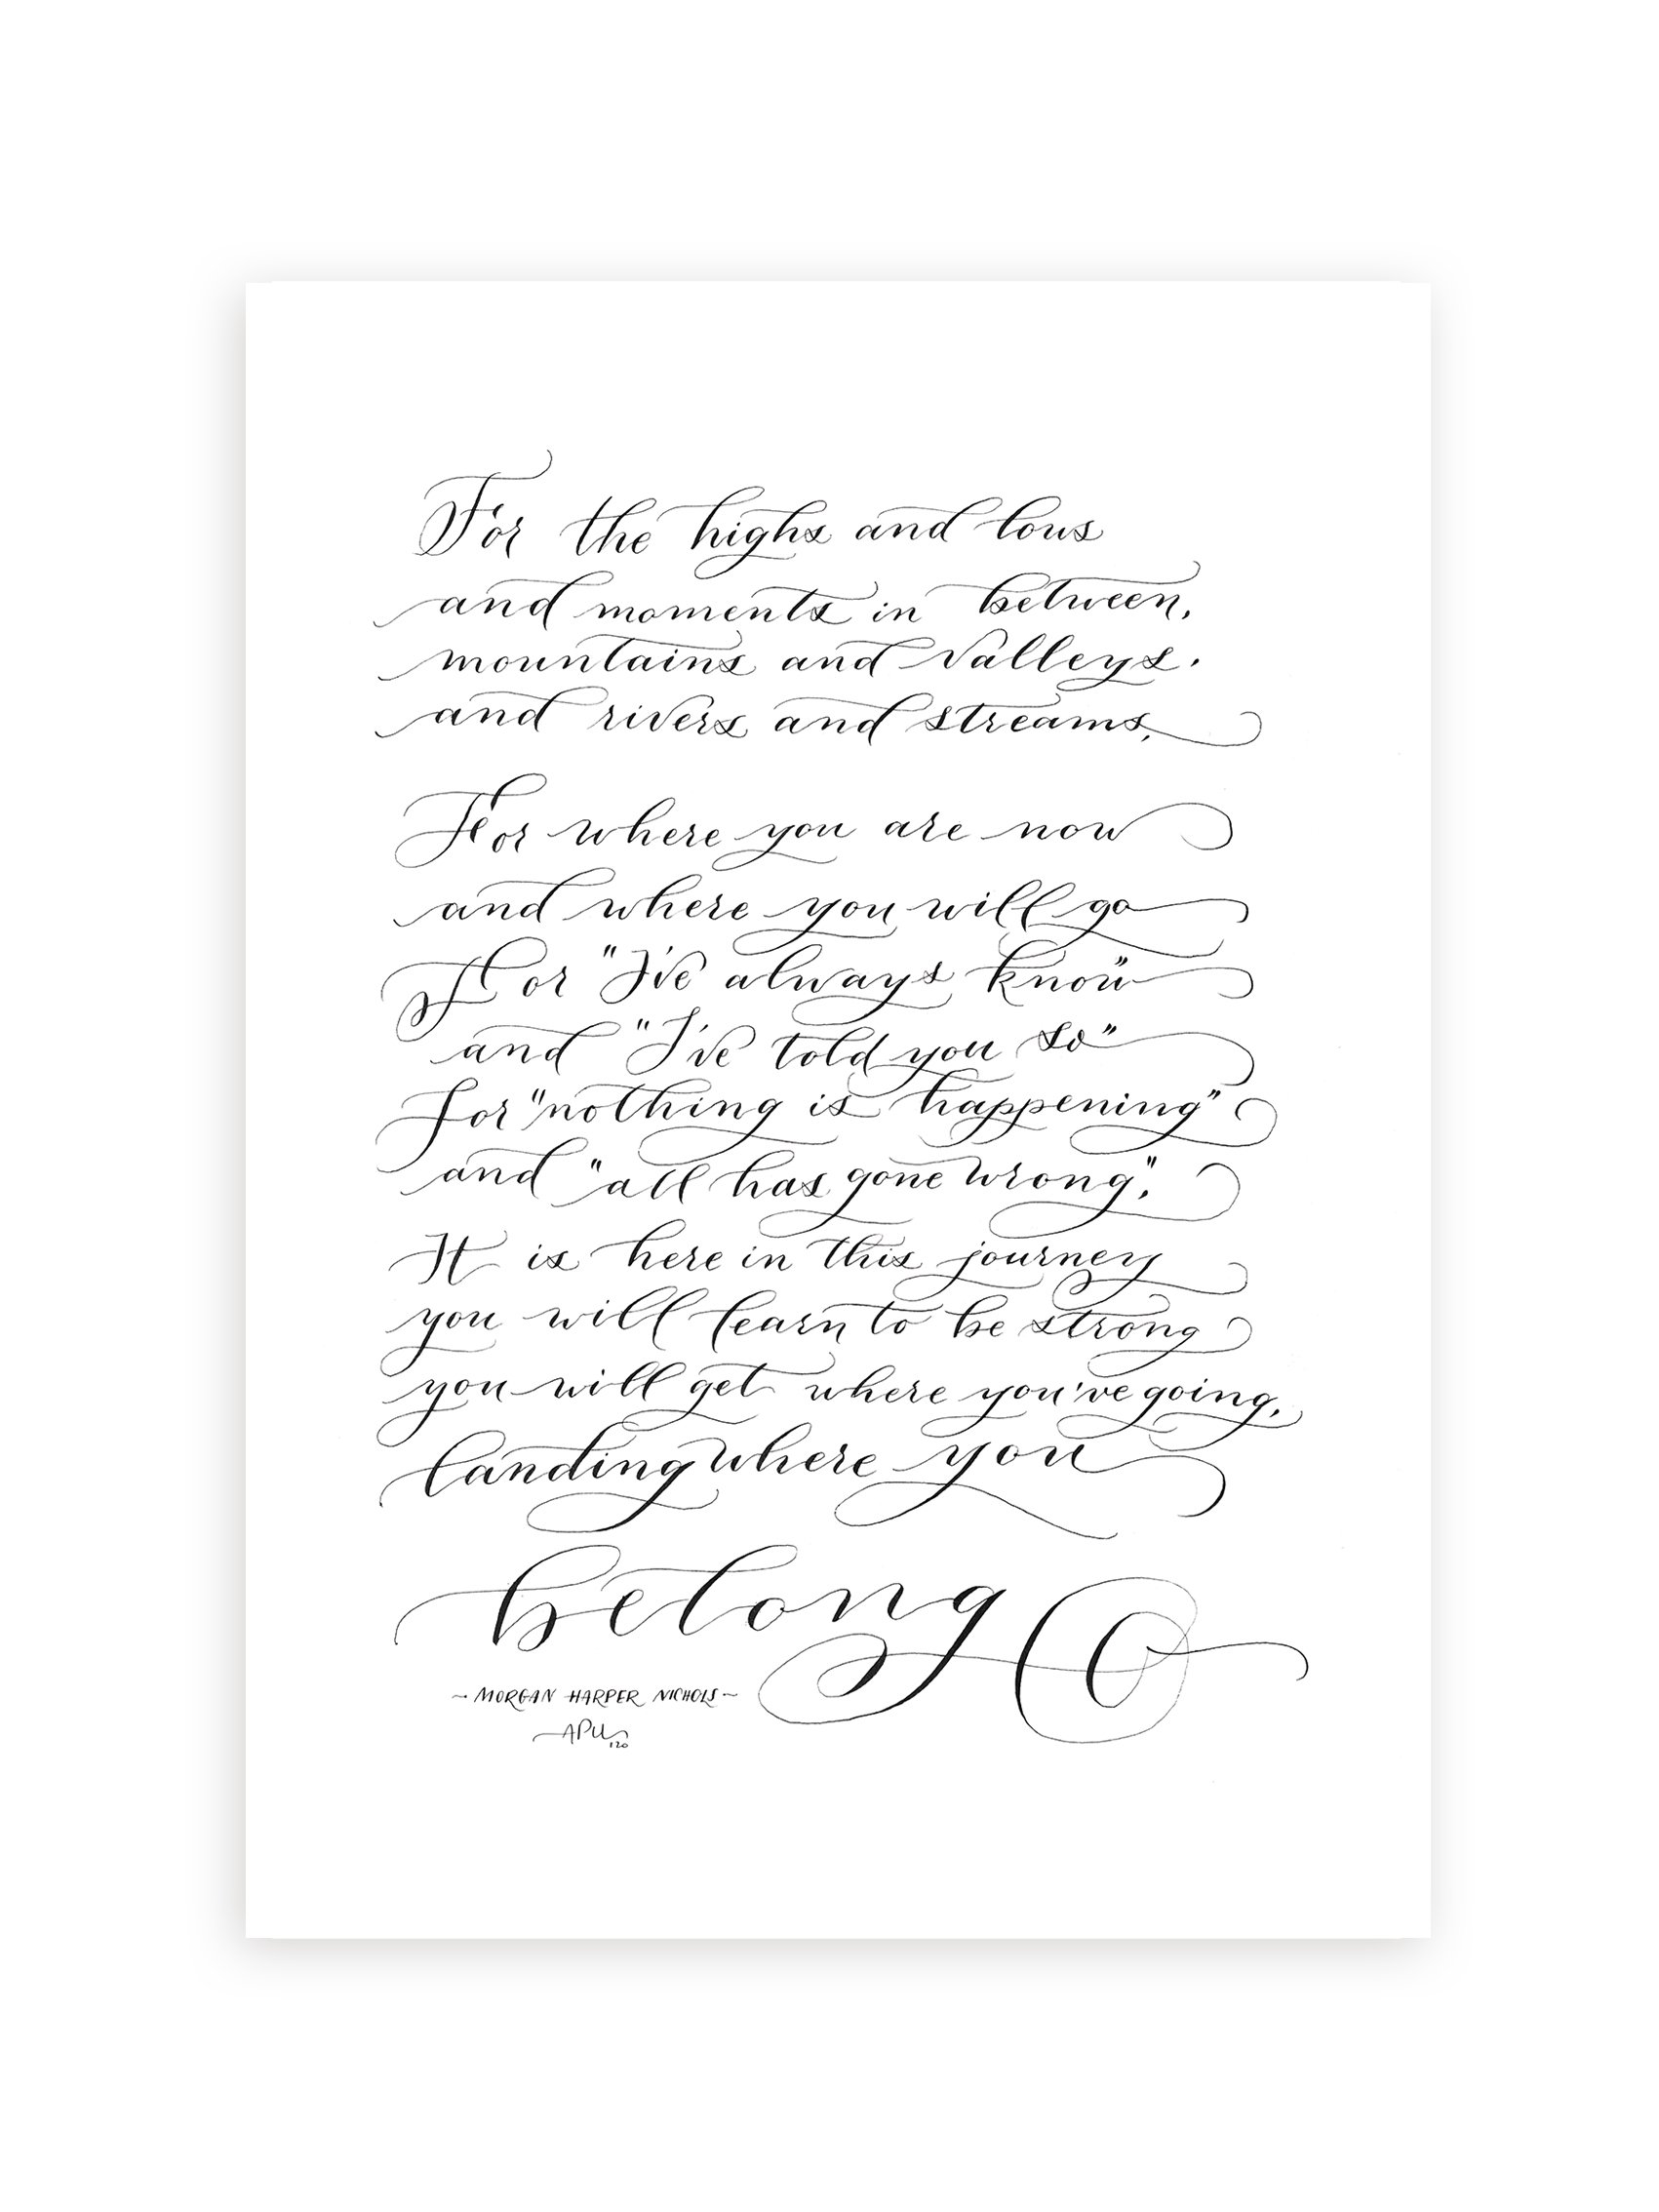 For the highs and lows
and moments in between,
mountains and valleys,
and rivers and streams,
For where you are now
and where you will go
For "I've always know"
and "I've told you so"
for "nothing is happening"
and "all has gone wrong",
It is here in this journey
you will learn to be strong
you will get where you've going,
landing where you
belong
~ MORGAN HARPER NICHOLS ~
APU
'20